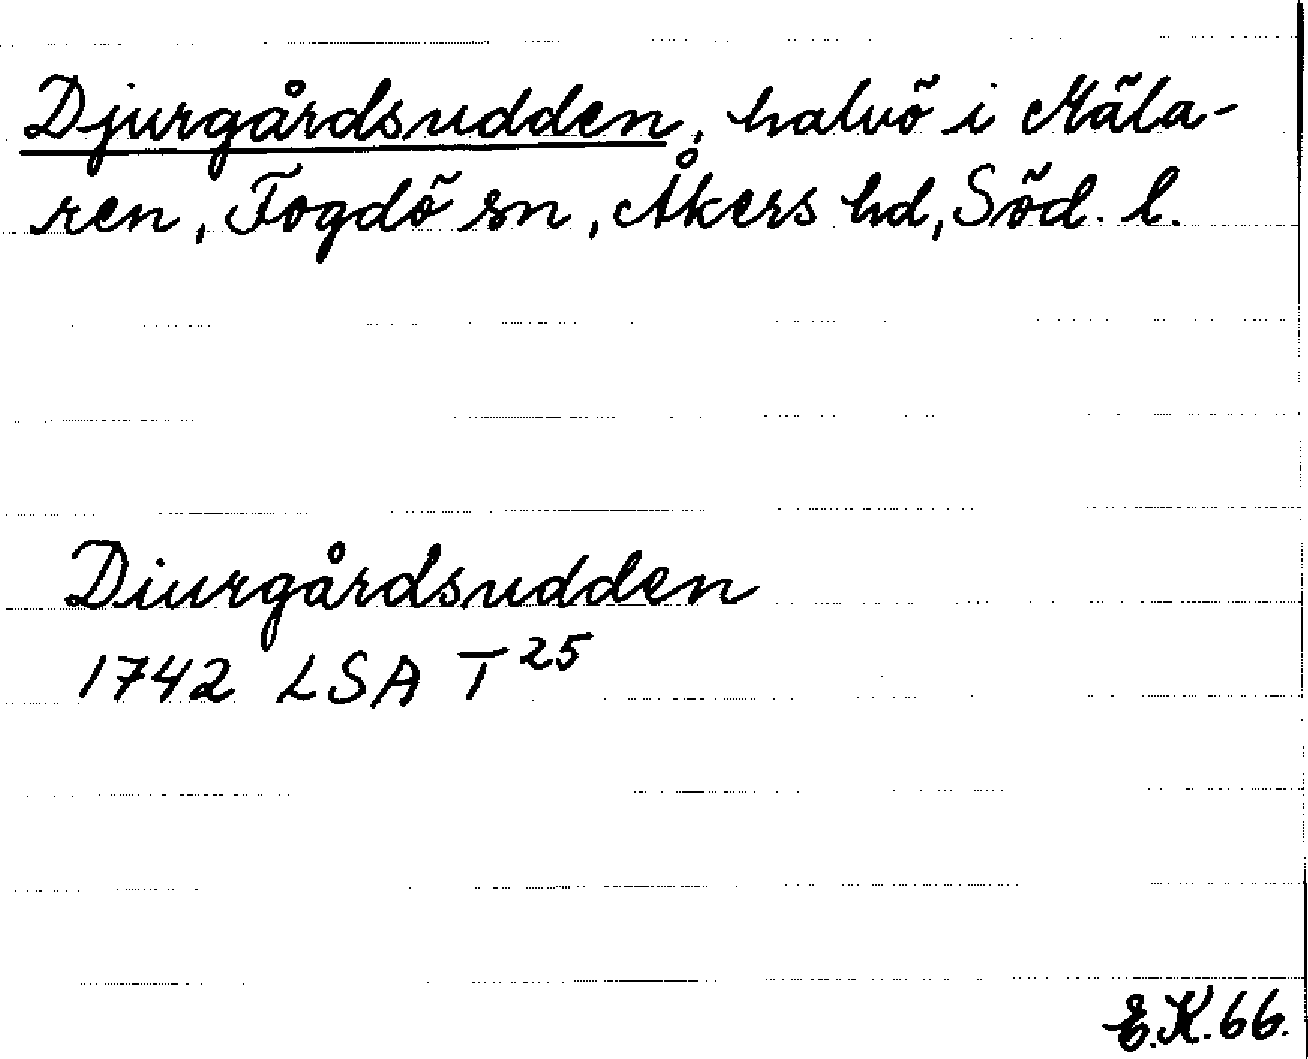 Djurgårdsudden, halvö i Mäla-
ren, Fogdö sn, Åkers hd, Söd. l.
Diurgårdsudden
1742 LSA T 25
E.K. 66.